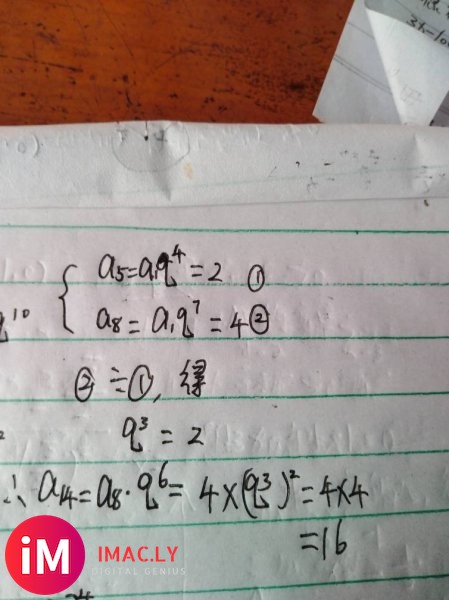 a₅=a₁q⁴=2 ①
a₈=a₁q⁷=4②
q¹⁰
②÷①,得
q³=2
∴a₁₄=a₈·q⁶=4×(q³)²=4×4
=16
iM IMAC.LY
DIGITAL GENIUS